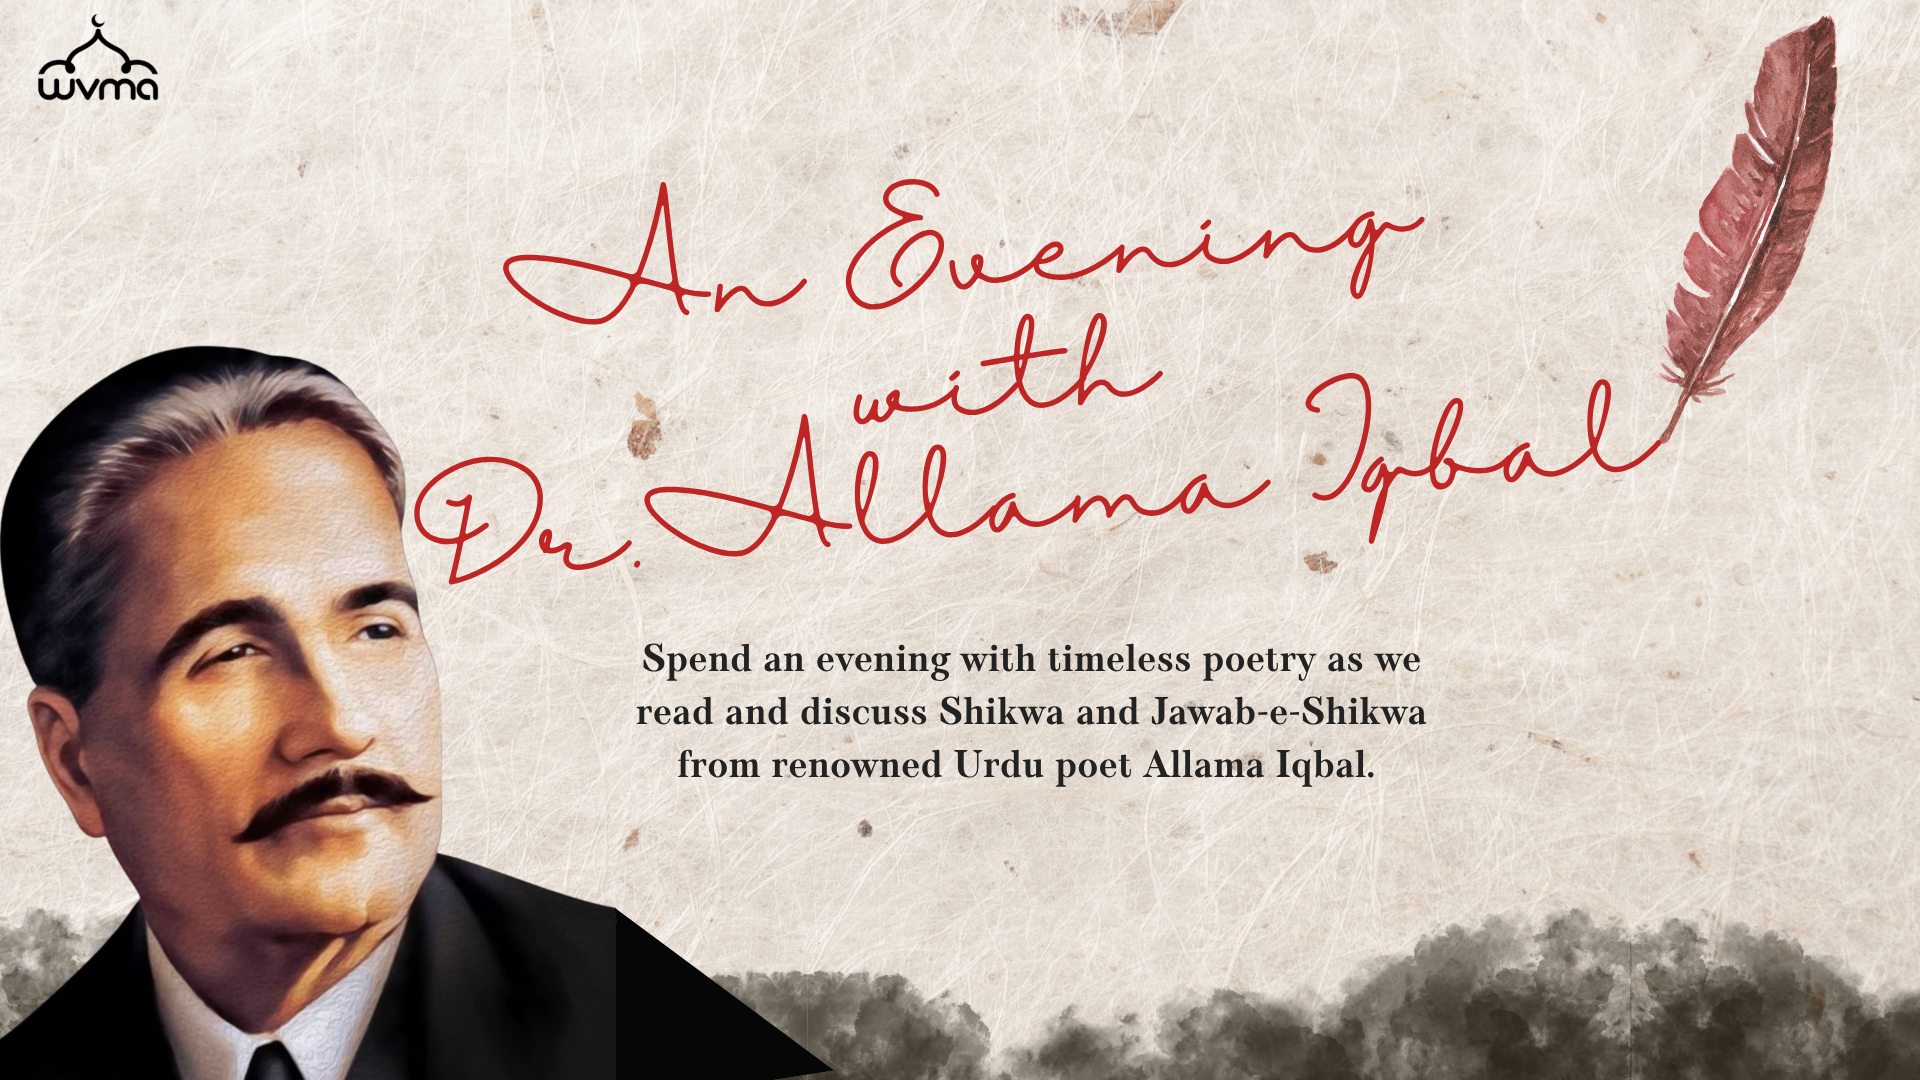 wvma
An Evening
with
Dr. Allama Iqbal
Spend an evening with timeless poetry as we
read and discuss Shikwa and Jawab-e-Shikwa
from renowned Urdu poet Allama Iqbal.